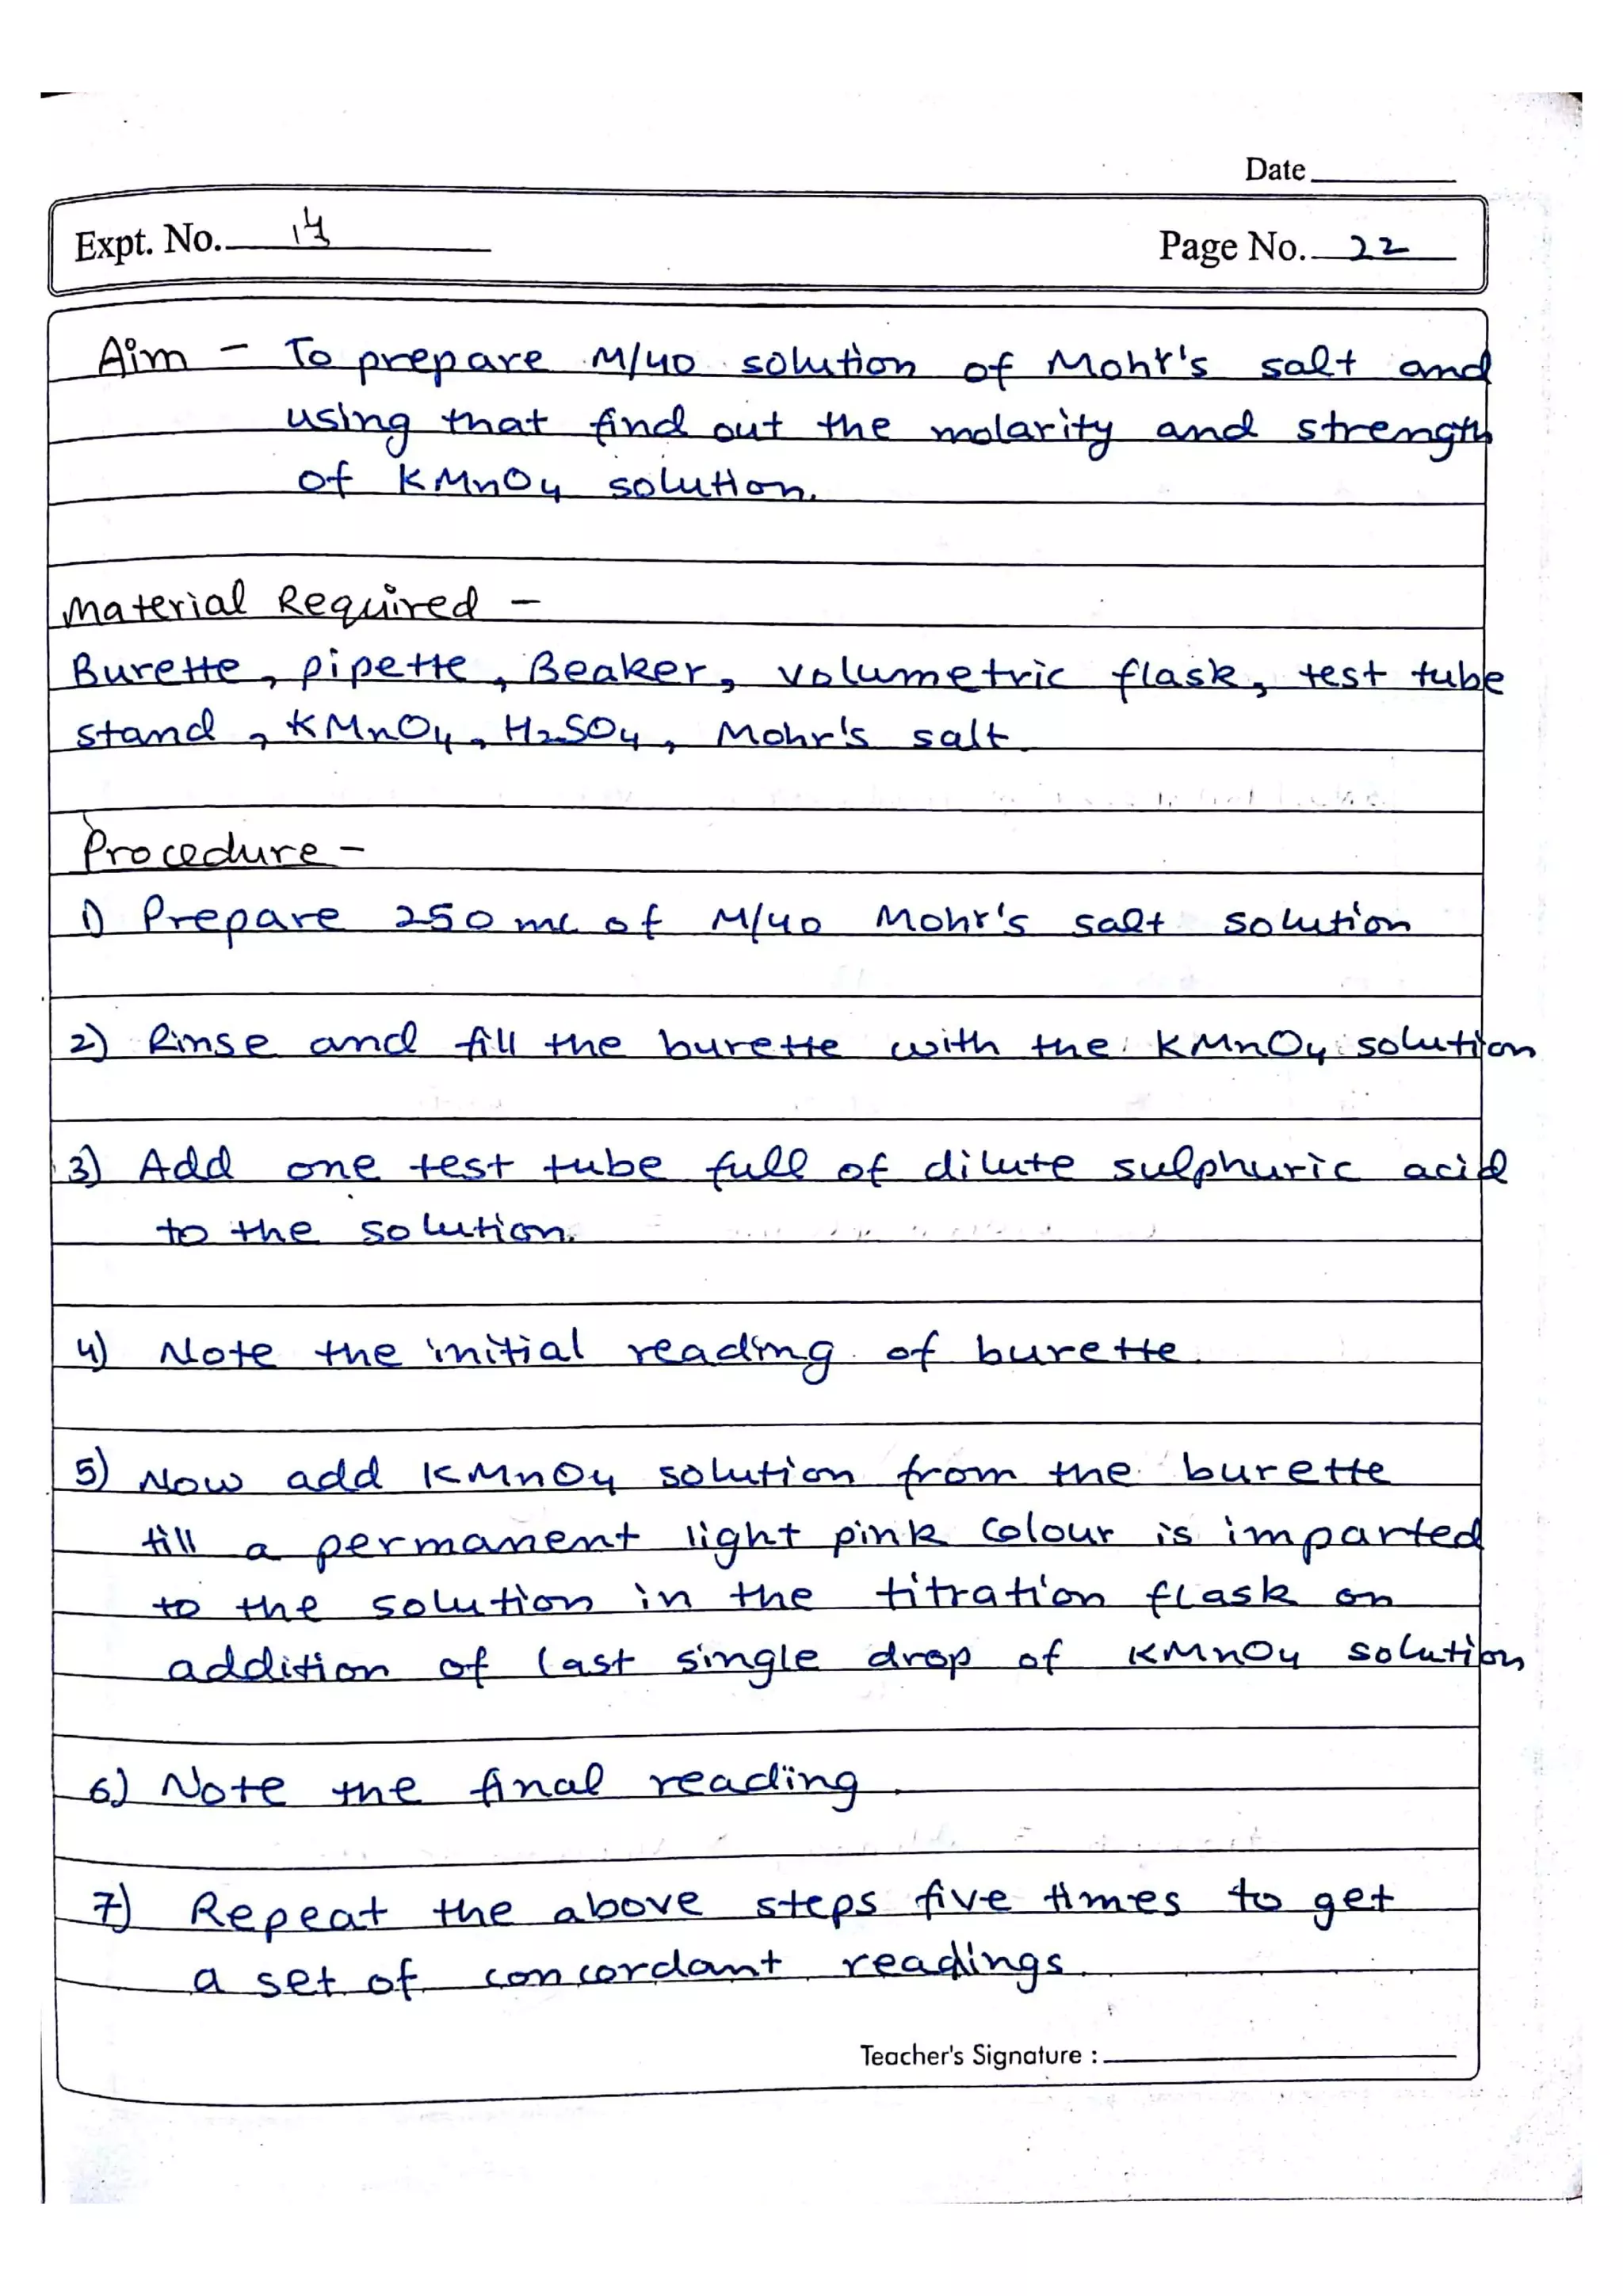 Date
Expt. No. 14
Page No. 22
Aim - To prepare M/40 solution of Mohr's salt and
using that find out the molarity and strength
of KMnO4 solution.
Material Required -
Burette, pipette, Beaker, volumetric flask, test tube
stand, KMnO4, H2SO4, Mohr's salt.
Procedure -
1) Prepare 250 mL of M/40 Mohr's salt solution
2) Rinse and fill the burette with the KMnO4 solution
3) Add one test tube full of dilute sulphuric acid
to the solution.
4) Note the initial reading of burette.
5) Now add KMnO4 solution from the burette
till a permanent light pink colour is imparted
to the solution in the titration flask on
addition of last single drop of KMnO4 solution
6) Note the final reading.
7) Repeat the above steps five times to get
a set of concordant readings.
Teacher's Signature :